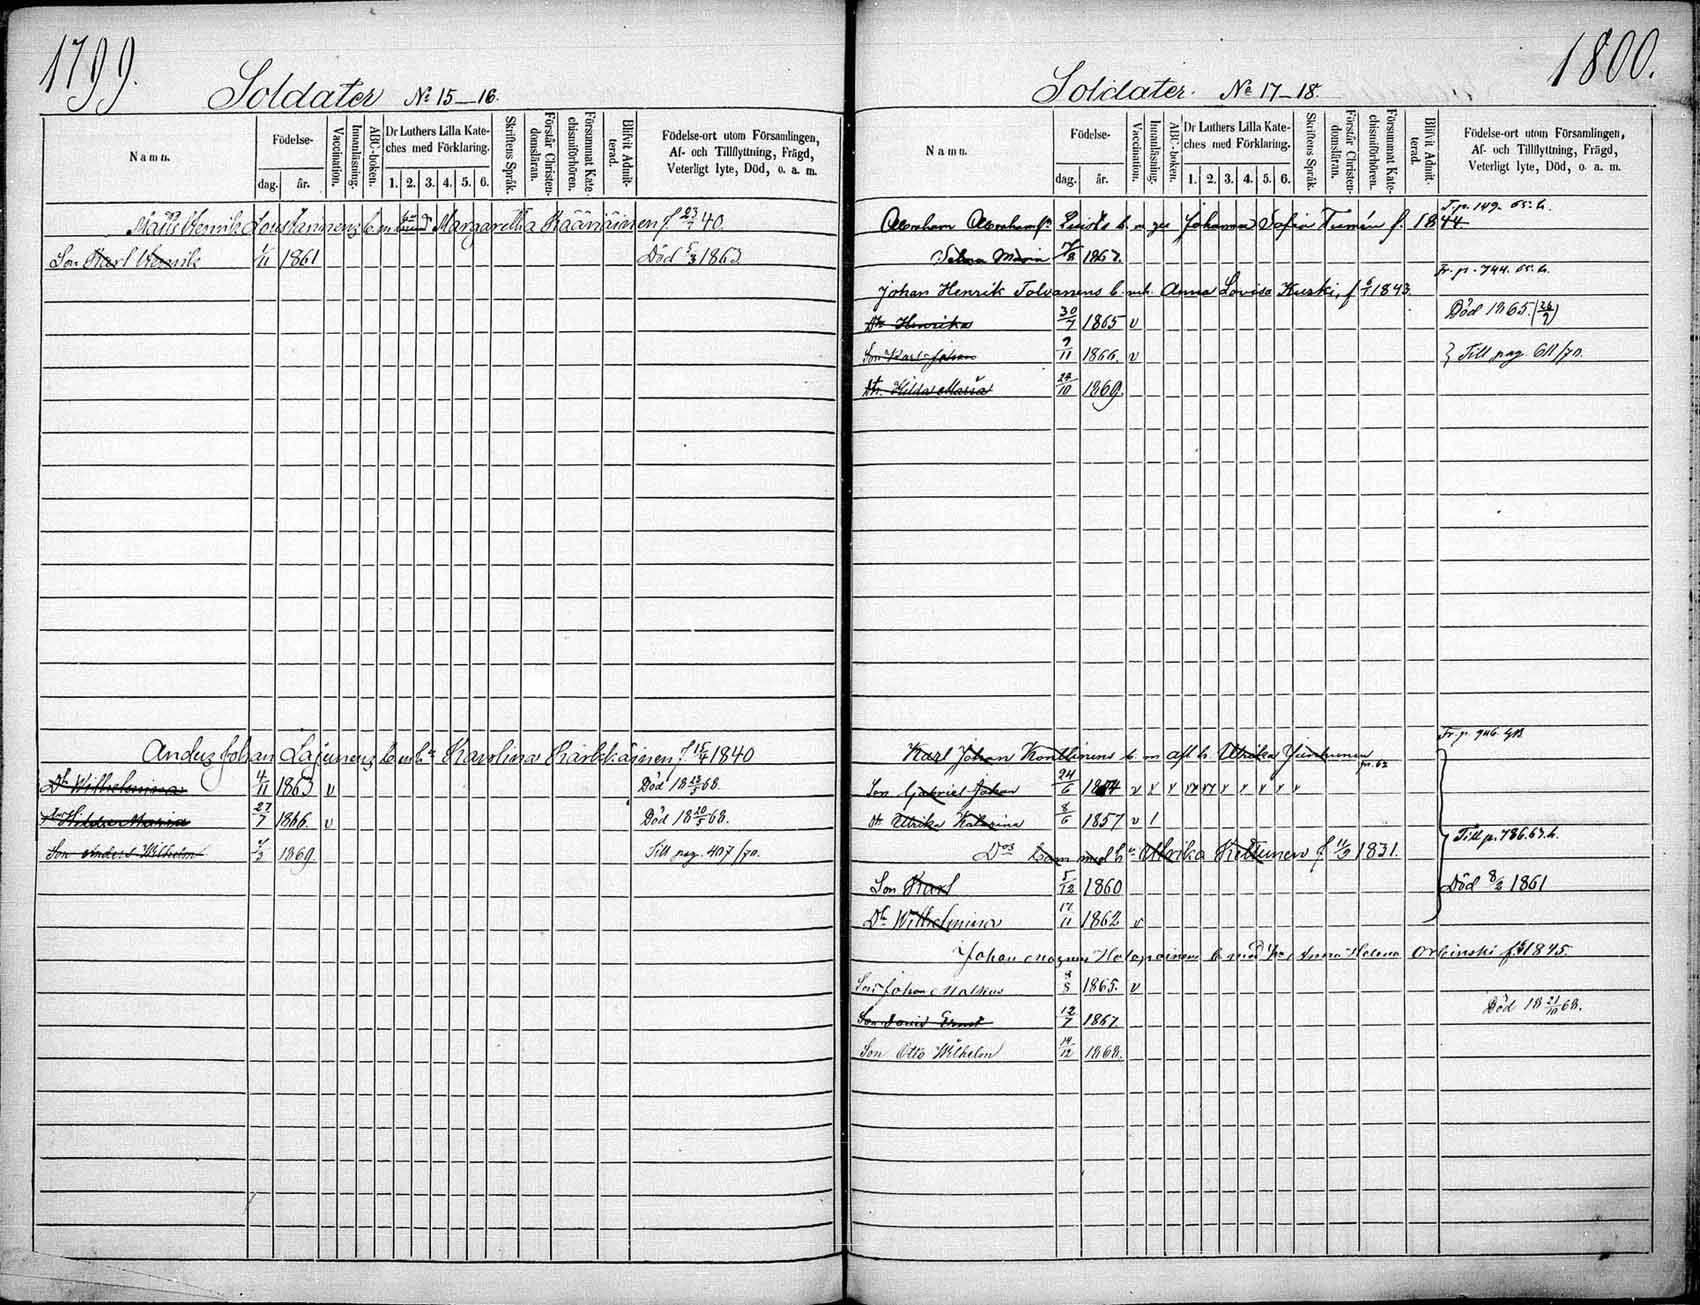 1799.
Soldater № 15–16.
Namn.
Födelse-
dag. år.
Vaccination.
Innanläsning.
ABC-boken.
Dr Luthers Lilla Kate-
ches med Förklaring.
1. 2. 3. 4. 5. 6.
Skriftens Språk.
Förstår Christen-
domsläran.
Försummat Kate-
chismiförhören.
Blifvit Admit-
terad.
Födelse-ort utom Församlingen,
Af- och Tillflyttning, Frägd,
Veterligt lyte, Död, o. a. m.
Matts Henrik b. m. Margaretha Räänäinen f. 23/7 40.
Son Karl Henrik 1/11 1861 Död 5/3 1863.
Anders Johan Lajunens b. m. h. Karolina Kärkkäinen f. 15/4 1840
Dr Wilhelmina 4/11 1863 v Död 18 68.
Hilda Maria 27/7 1866. v Död 18 68.
Son Anders Wilhelm 1869. Till pag. 407/70.
1800.
Soldater № 17–18.
Namn.
Födelse-
dag. år.
Vaccination.
Innanläsning.
ABC-boken.
Dr Luthers Lilla Kate-
ches med Förklaring.
1. 2. 3. 4. 5. 6.
Skriftens Språk.
Förstår Christen-
domsläran.
Försummat Kate-
chismiförhören.
Blifvit Admit-
terad.
Födelse-ort utom Församlingen,
Af- och Tillflyttning, Frägd,
Veterligt lyte, Död, o. a. m.
T. p. 149. 65. b.
Abraham Abrahamss. b. m. Johanna Sofia f. 1844.
Selma Maria 1867.
Fr. p. 744. 65. b.
Johan Henrik Tolvanens b. m. h. Anna Lovisa Kuski, f. 1843.
Dr Henrika 30/7 1865 v Död 1865. (26/9)
Son Karl Johan 9/11 1866. v } Till pag 611/70.
Dr. Hilda Maria 24/10 1869.
Fr. p. 946.
Karl Johan Konttinens b. m. afl. h. Ulrika
Son Gabriel Johan 24/6 18
Dr Ulrika Katarina 8/6 1857 v 1 Till p. 786.67. b.
Dos b. m. med h. Ulrika Kettunen f. 11/3 1831.
Son Karl 5/12 1860 Död 8/2 1861
Dr Wilhelmina 17/11 1862 v
Johan Magnus Holopainens b. med h. Anna Helena Orbinski f. 1845.
Son Johan 1865. v
Son David Ernst 12/7 1867 Död 18 21/10 68.
Son Otto Wilhelm 14/12 1868.